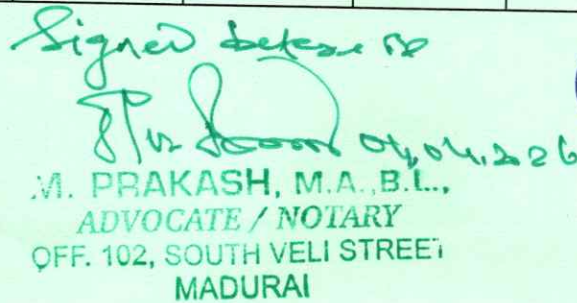 Signed before me
04.04.2026
M. PRAKASH, M.A.,B.L.,
ADVOCATE / NOTARY
OFF. 102, SOUTH VELI STREET
MADURAI